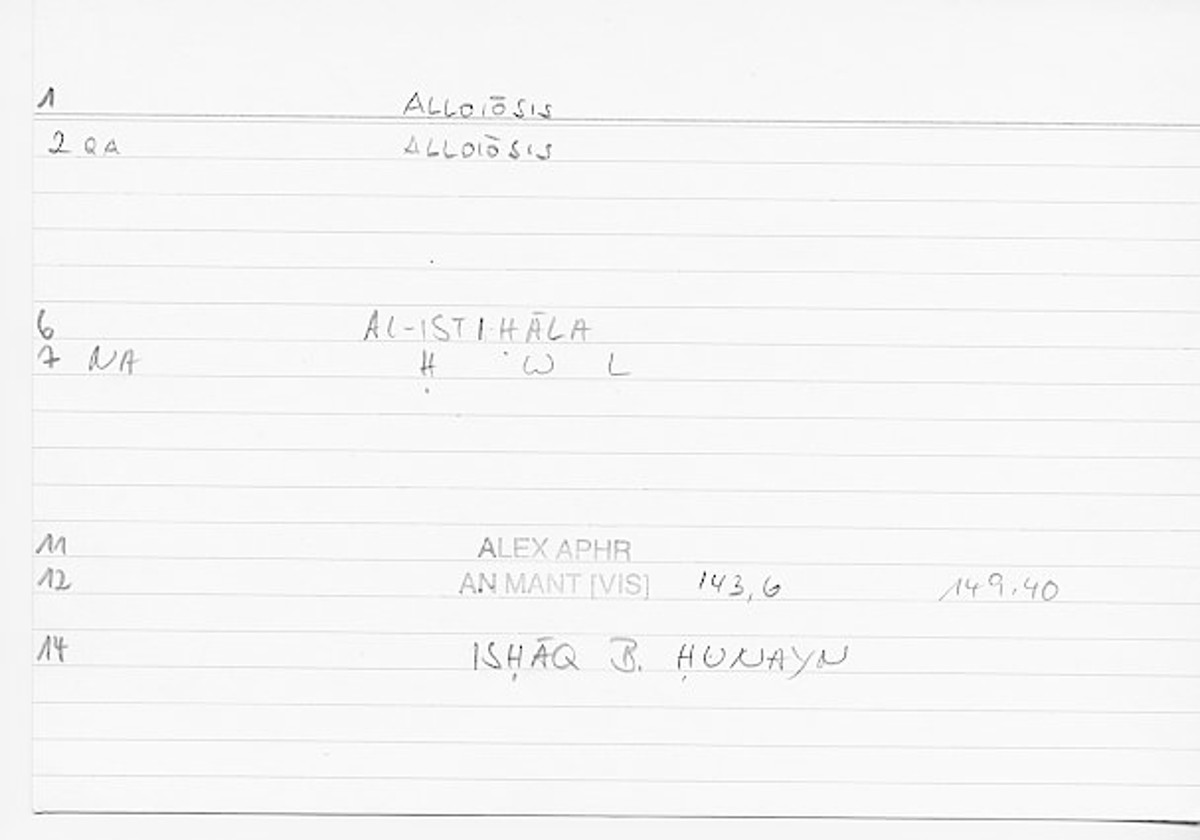 1 ALLOIŌSIS
2 QA ALLOIŌSIS
6 AL-ISTIHĀLA
7 NA Ḥ W L
11 ALEX APHR
12 AN MANT [VIS] 143,6 149.40
14 ISḤĀQ B. ḤUNAYN